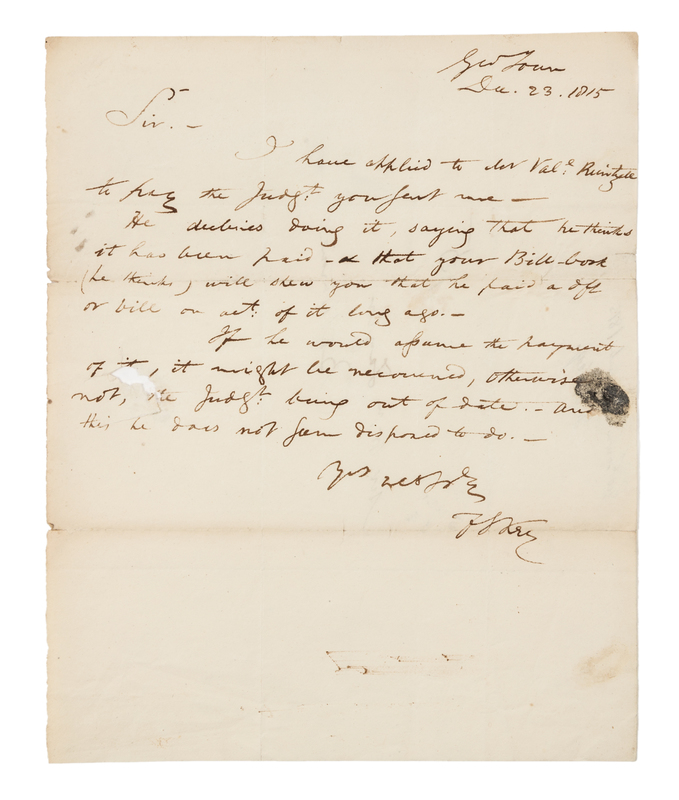 Geo Town
Dec. 23. 1815
Sir. —
I have applied to Mr Val.e Reintzell
to pay the Judgt. you sent me —
He declines doing it, saying that he thinks
it has been paid - & that your Bill-book
(he thinks) will shew you that he paid a dft
or bill on act. of it long ago. —
If he would assume the payment
of it, it might be recovered, otherwise
not, the Judgt. being out of date. - And
this he does not seem disposed to do. —
Yrs resply
F S Key